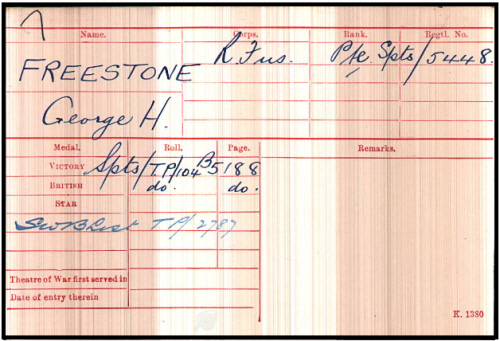 Name. Corps. Rank. Regtl. No.
FREESTONE R. Fus. Pte Spts/5448.
George H.
Medal. Roll. Page. Remarks.
VICTORY Spts/TP/104B5 188
BRITISH do. do.
STAR
SWB List TP/2787
Theatre of War first served in
Date of entry therein
K. 1380